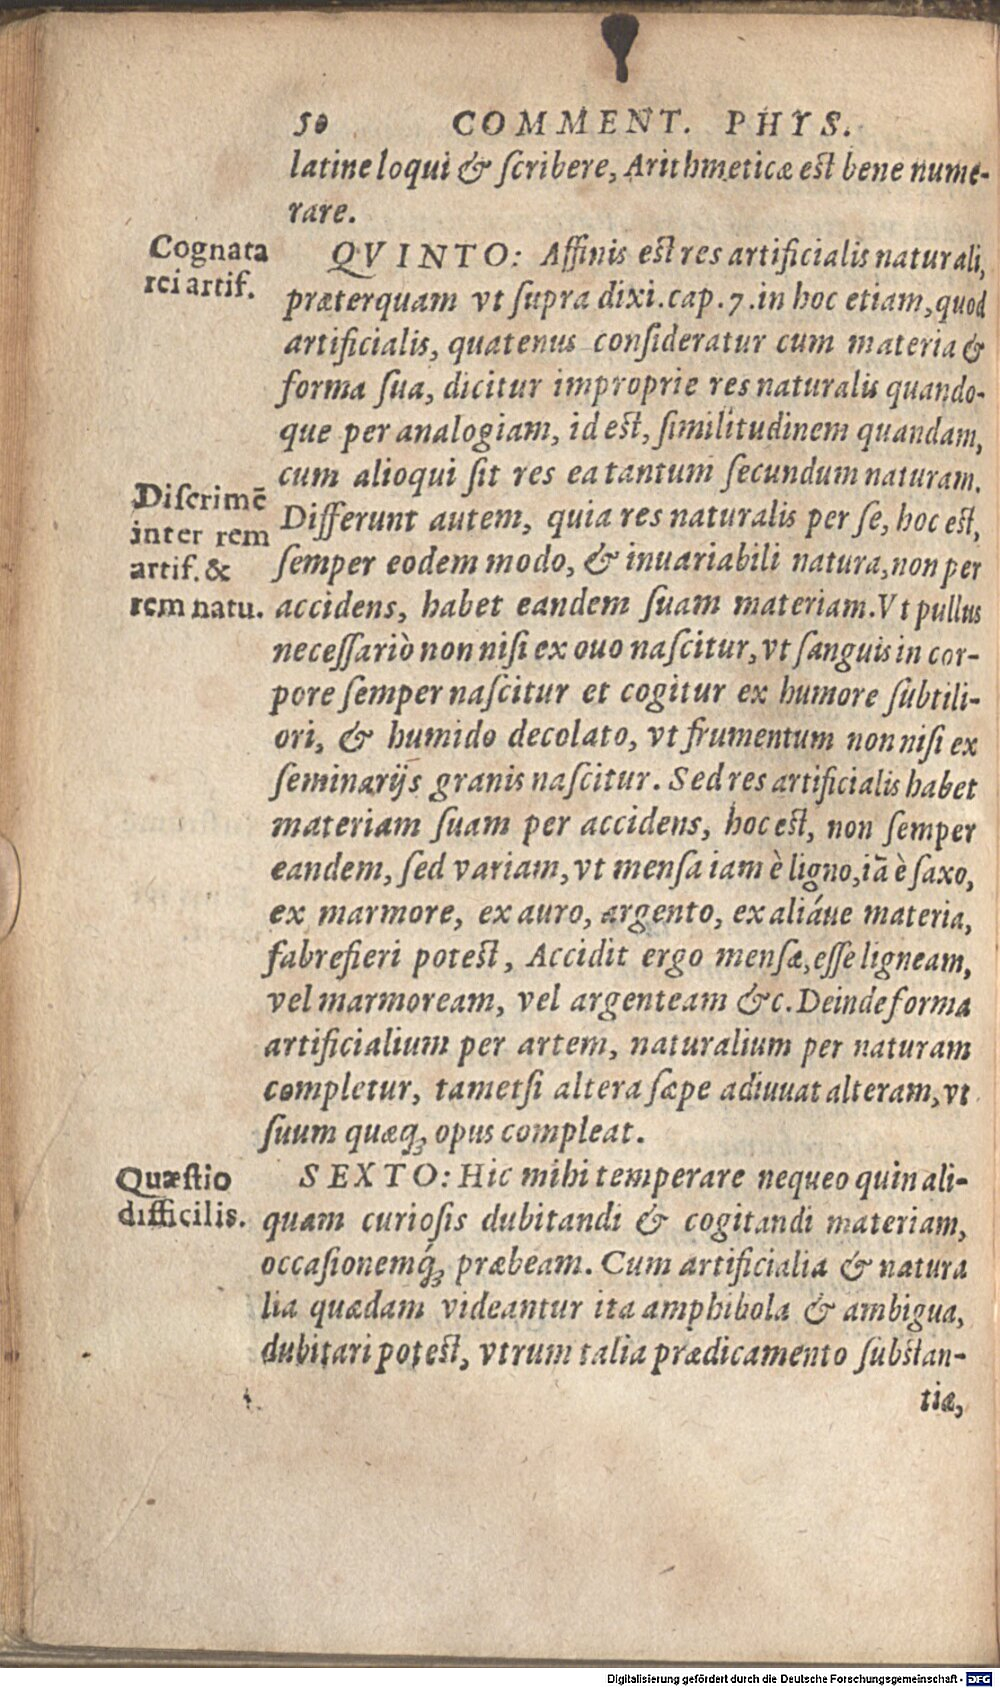 50 COMMENT. PHYS.
latine loqui & scribere, Arithmeticæ est bene nume-
rare.
Cognata
rei artif.
QVINTO: Affinis est res artificialis naturali,
præterquam vt supra dixi. cap. 7. in hoc etiam, quod
artificialis, quatenus consideratur cum materia &
forma sua, dicitur improprie res naturalis quando-
que per analogiam, id est, similitudinem quandam,
cum alioqui sit res ea tantum secundum naturam.
Discrimē
inter rem
artif. &
rem natu.
Differunt autem, quia res naturalis per se, hoc est,
semper eodem modo, & inuariabili natura, non per
accidens, habet eandem suam materiam. Vt pullus
necessariò non nisi ex ouo nascitur, vt sanguis in cor-
pore semper nascitur et cogitur ex humore subtili-
ori, & humido decolato, vt frumentum non nisi ex
seminarijs granis nascitur. Sed res artificialis habet
materiam suam per accidens, hoc est, non semper
eandem, sed variam, vt mensa iam è ligno, iā è saxo,
ex marmore, ex auro, argento, ex aliáue materia,
fabrefieri potest, Accidit ergo mensæ, esse ligneam,
vel marmoream, vel argenteam &c. Deinde forma
artificialium per artem, naturalium per naturam
completur, tametsi altera sæpe adiuuat alteram, vt
suum quæq; opus compleat.
Quæstio
difficilis.
SEXTO: Hic mihi temperare nequeo quin ali-
quam curiosis dubitandi & cogitandi materiam,
occasionemq́; præbeam. Cum artificialia & natura
lia quædam videantur ita amphibola & ambigua,
dubitari potest, vtrum talia prædicamento substan-
tiæ,
Digitalisierung gefördert durch die Deutsche Forschungsgemeinschaft - DFG